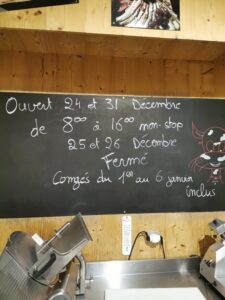 Ouvert 24 et 31 Décembre
de 8⁰⁰ à 16⁰⁰ non-stop
25 et 26 Décembre
Fermé
Congés du 1er au 6 janvier
inclus